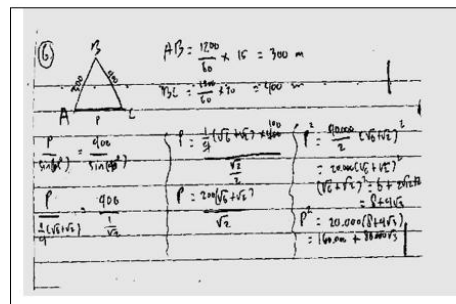 6.
B
300
400
A
P
C
AB = 1200/60 x 15 = 300 m
BC = 1200/60 x 20 = 400 m
P/sin(  °) = 400/sin(  °)
P/(1/4(√6+√2)) = 400/(1/√2)
P = 1/4(√6+√2) x 400
√2/2
P = 200(√6+√2)
√2
P² = 40.000/2 (√6+√2)²
= 20.000(√6+√2)²
(√6+√2)² = 6 + 2√12 +
= 8+4√3
P² = 20.000(8+4√3)
= 160.000 + 80.000√3